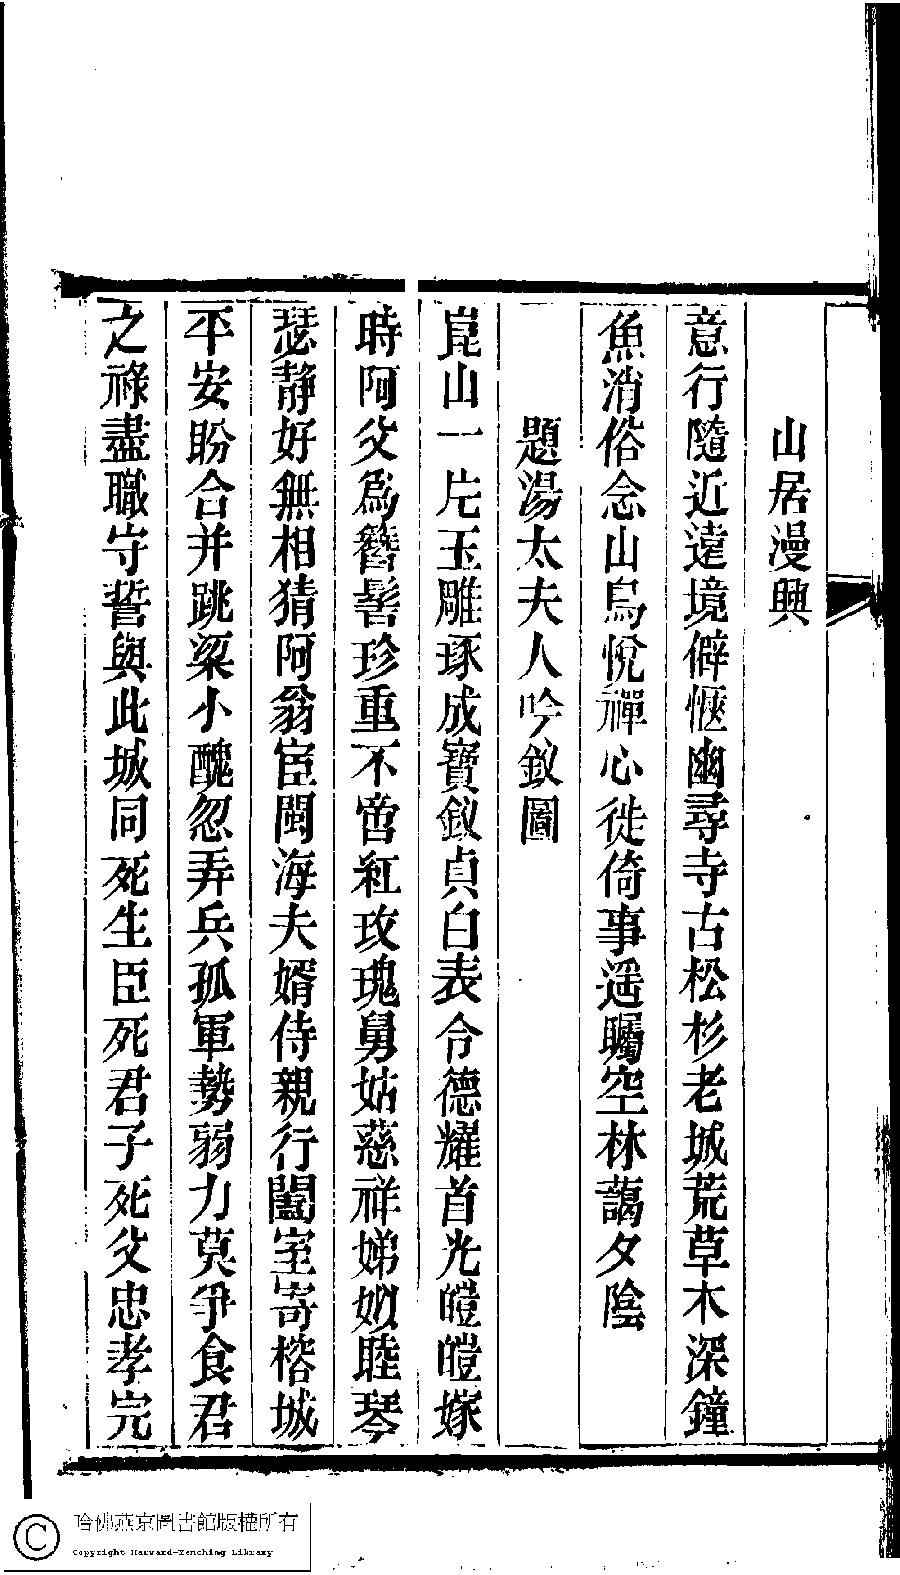 山居漫興
意行隨近遠境僻愜幽尋寺古松杉老城荒草木深鐘
魚消俗念山鳥悅禪心徙倚事遥矚空林藹夕陰
題湯太夫人吟釵圖
崑山一片玉雕琢成寶釵貞白表令德耀首光皚皚嫁
時阿父爲簪髻珍重不啻紅玫瑰舅姑慈祥娣姒睦琴
瑟靜好無相猜阿翁宦閩海夫婿侍親行闔室寄榕城
平安盼合并跳梁小醜忽弄兵孤軍勢弱力莫爭食君
之祿盡職守誓與此城同死生臣死君子死父忠孝完
哈佛燕京圖書館版權所有
Copyright Harvard-Yenching Library